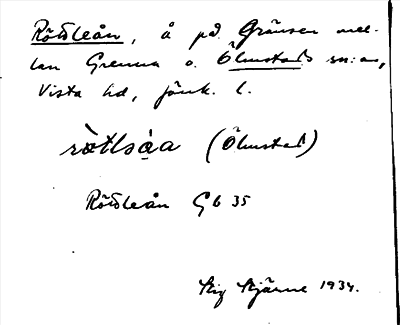 Röttleån, å på Gränsen mel-
lan Grenna o. Ölmstads sn:ar,
Vista hd, Jönk. l.
rötlsåa (Ölmstad)
Röttleån Gb 35
Stig Stjärne 1934.